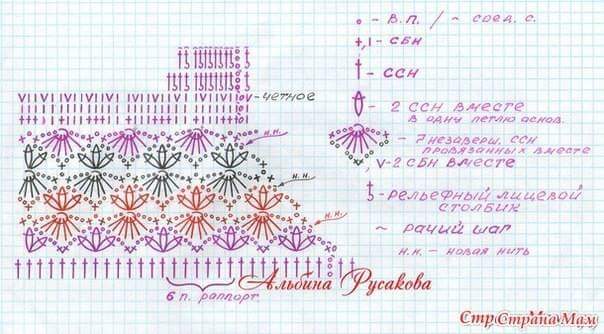 ∘ – В.П. / ⌒ соед. с.
+,ı – СБН
† – ССН
– 2 ССН вместе
в одну петлю основ.
– 7 незаверш. ССН
провязанных вместе
∧,v – 2 СБН вместе
– рельефный лицевой
столбик
~ рачий шаг
н.н. – новая нить
v – четное
н.н.
н.н.
н.н.
6 п. раппорт
Альбина Русакова
Стр Страна Мам